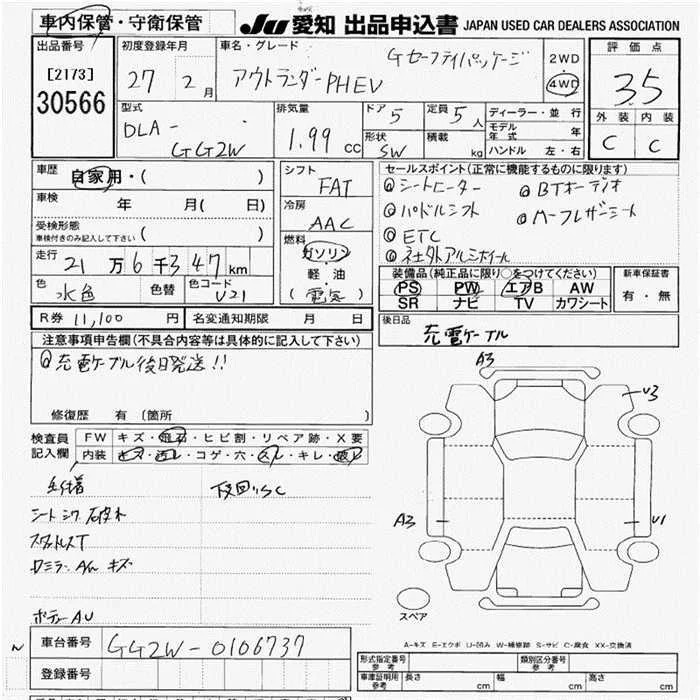 車内保管・守衛保管
JU 愛知 出品申込書 JAPAN USED CAR DEALERS ASSOCIATION
出品番号
[2173]
30566
初度登録年月
27 2月
車名・グレード
アウトランダーPHEV
Gセーフティパッケージ
2WD
4WD
評価点
3.5
外装 内装
C C
型式
DLA-
GG2W
排気量
1.99 cc
ドア 5
形状 SW
定員 5人
積載 kg
ディーラー・並行
モデル年式 年
ハンドル 左・右
車歴
自家用・( )
車検 年 月( 日)
受検形態
車検付きのみ記入して下さい ( )
走行
21万6千347km
色 水色 色替 色コード U21
シフト
FAT
冷房
AAC
燃料
ガソリン
軽・油
(電気)
セールスポイント(正常に機能するものに限ります)
◎シートヒーター ◎BTオーディオ
◎パドルシフト ◎ハーフレザーシート
◎ETC
◎社外アルミホイール
装備品(純正品に限り○をつけてください)
PS PW エアB AW
SR ナビ TV カワシート
新車保証書
有・無
R券 11,100円 名変通知期限 月 日
後日品
充電ケーブル
注意事項申告欄(不具合内容等は具体的に記入して下さい)
◎充電ケーブル後日発送!!
修復歴 有(箇所 )
検査員記入欄
FW キズ・飛石・ヒビ割・リペア跡・X要
内装 キズ・汚レ・コゲ・穴・スレ・キレ・破レ
下回りSC
シートシワ
スタッドレスT
キズ
ボディーAU
A3
U3
A3
U1
スペア
A-キズ E-エクボ U-凹み W-補修跡 S-サビ C-腐食 XX-交換済
N
車台番号 GG2W-0106737
登録番号
形式指定番号 参考
類別区分番号 参考
車庫証明用 参考 長さ cm 幅 cm 高さ cm